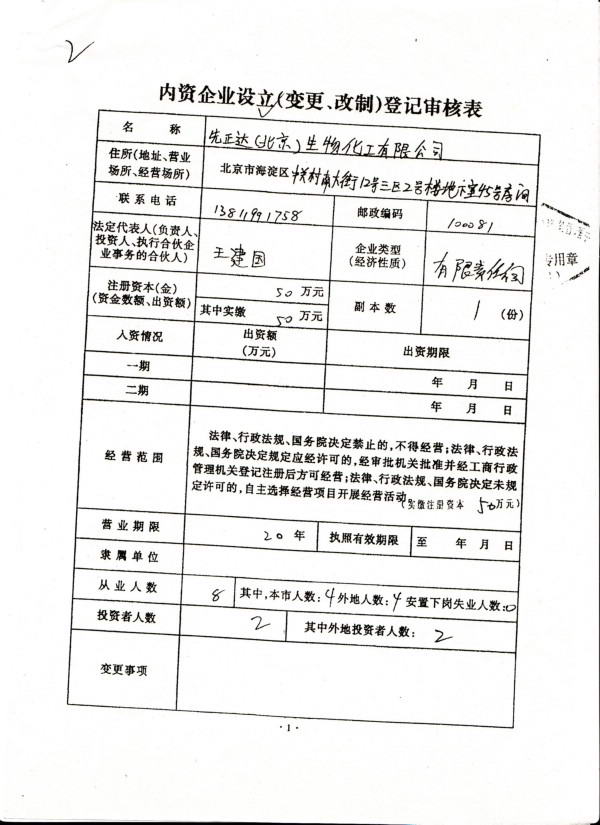 2
内资企业设立(变更、改制)登记审核表
名 称 先正达(北京)生物化工有限公司
住所(地址、营业场所、经营场所) 北京市海淀区中关村南大街12号三区2号楼地下室45号房间
联系电话 13811991758 邮政编码 100081
法定代表人(负责人、投资人、执行合伙企业事务的合伙人) 王建国 企业类型(经济性质) 有限责任公司
专用章
注册资本(金)(资金数额、出资额) 50 万元 副本数 1 (份)
其中实缴 50 万元
入资情况 出资额(万元) 出资期限
一期 年 月 日
二期 年 月 日
经营范围
法律、行政法规、国务院决定禁止的,不得经营;法律、行政法
规、国务院决定规定应经许可的,经审批机关批准并经工商行政
管理机关登记注册后方可经营;法律、行政法规、国务院决定未规
定许可的,自主选择经营项目开展经营活动(实缴注册资本 50万元)
营业期限 20 年 执照有效期限 至 年 月 日
隶属单位
从业人数 8 其中,本市人数:4 外地人数:4 安置下岗失业人数:0
投资者人数 2 其中外地投资者人数: 2
变更事项
· 1 ·